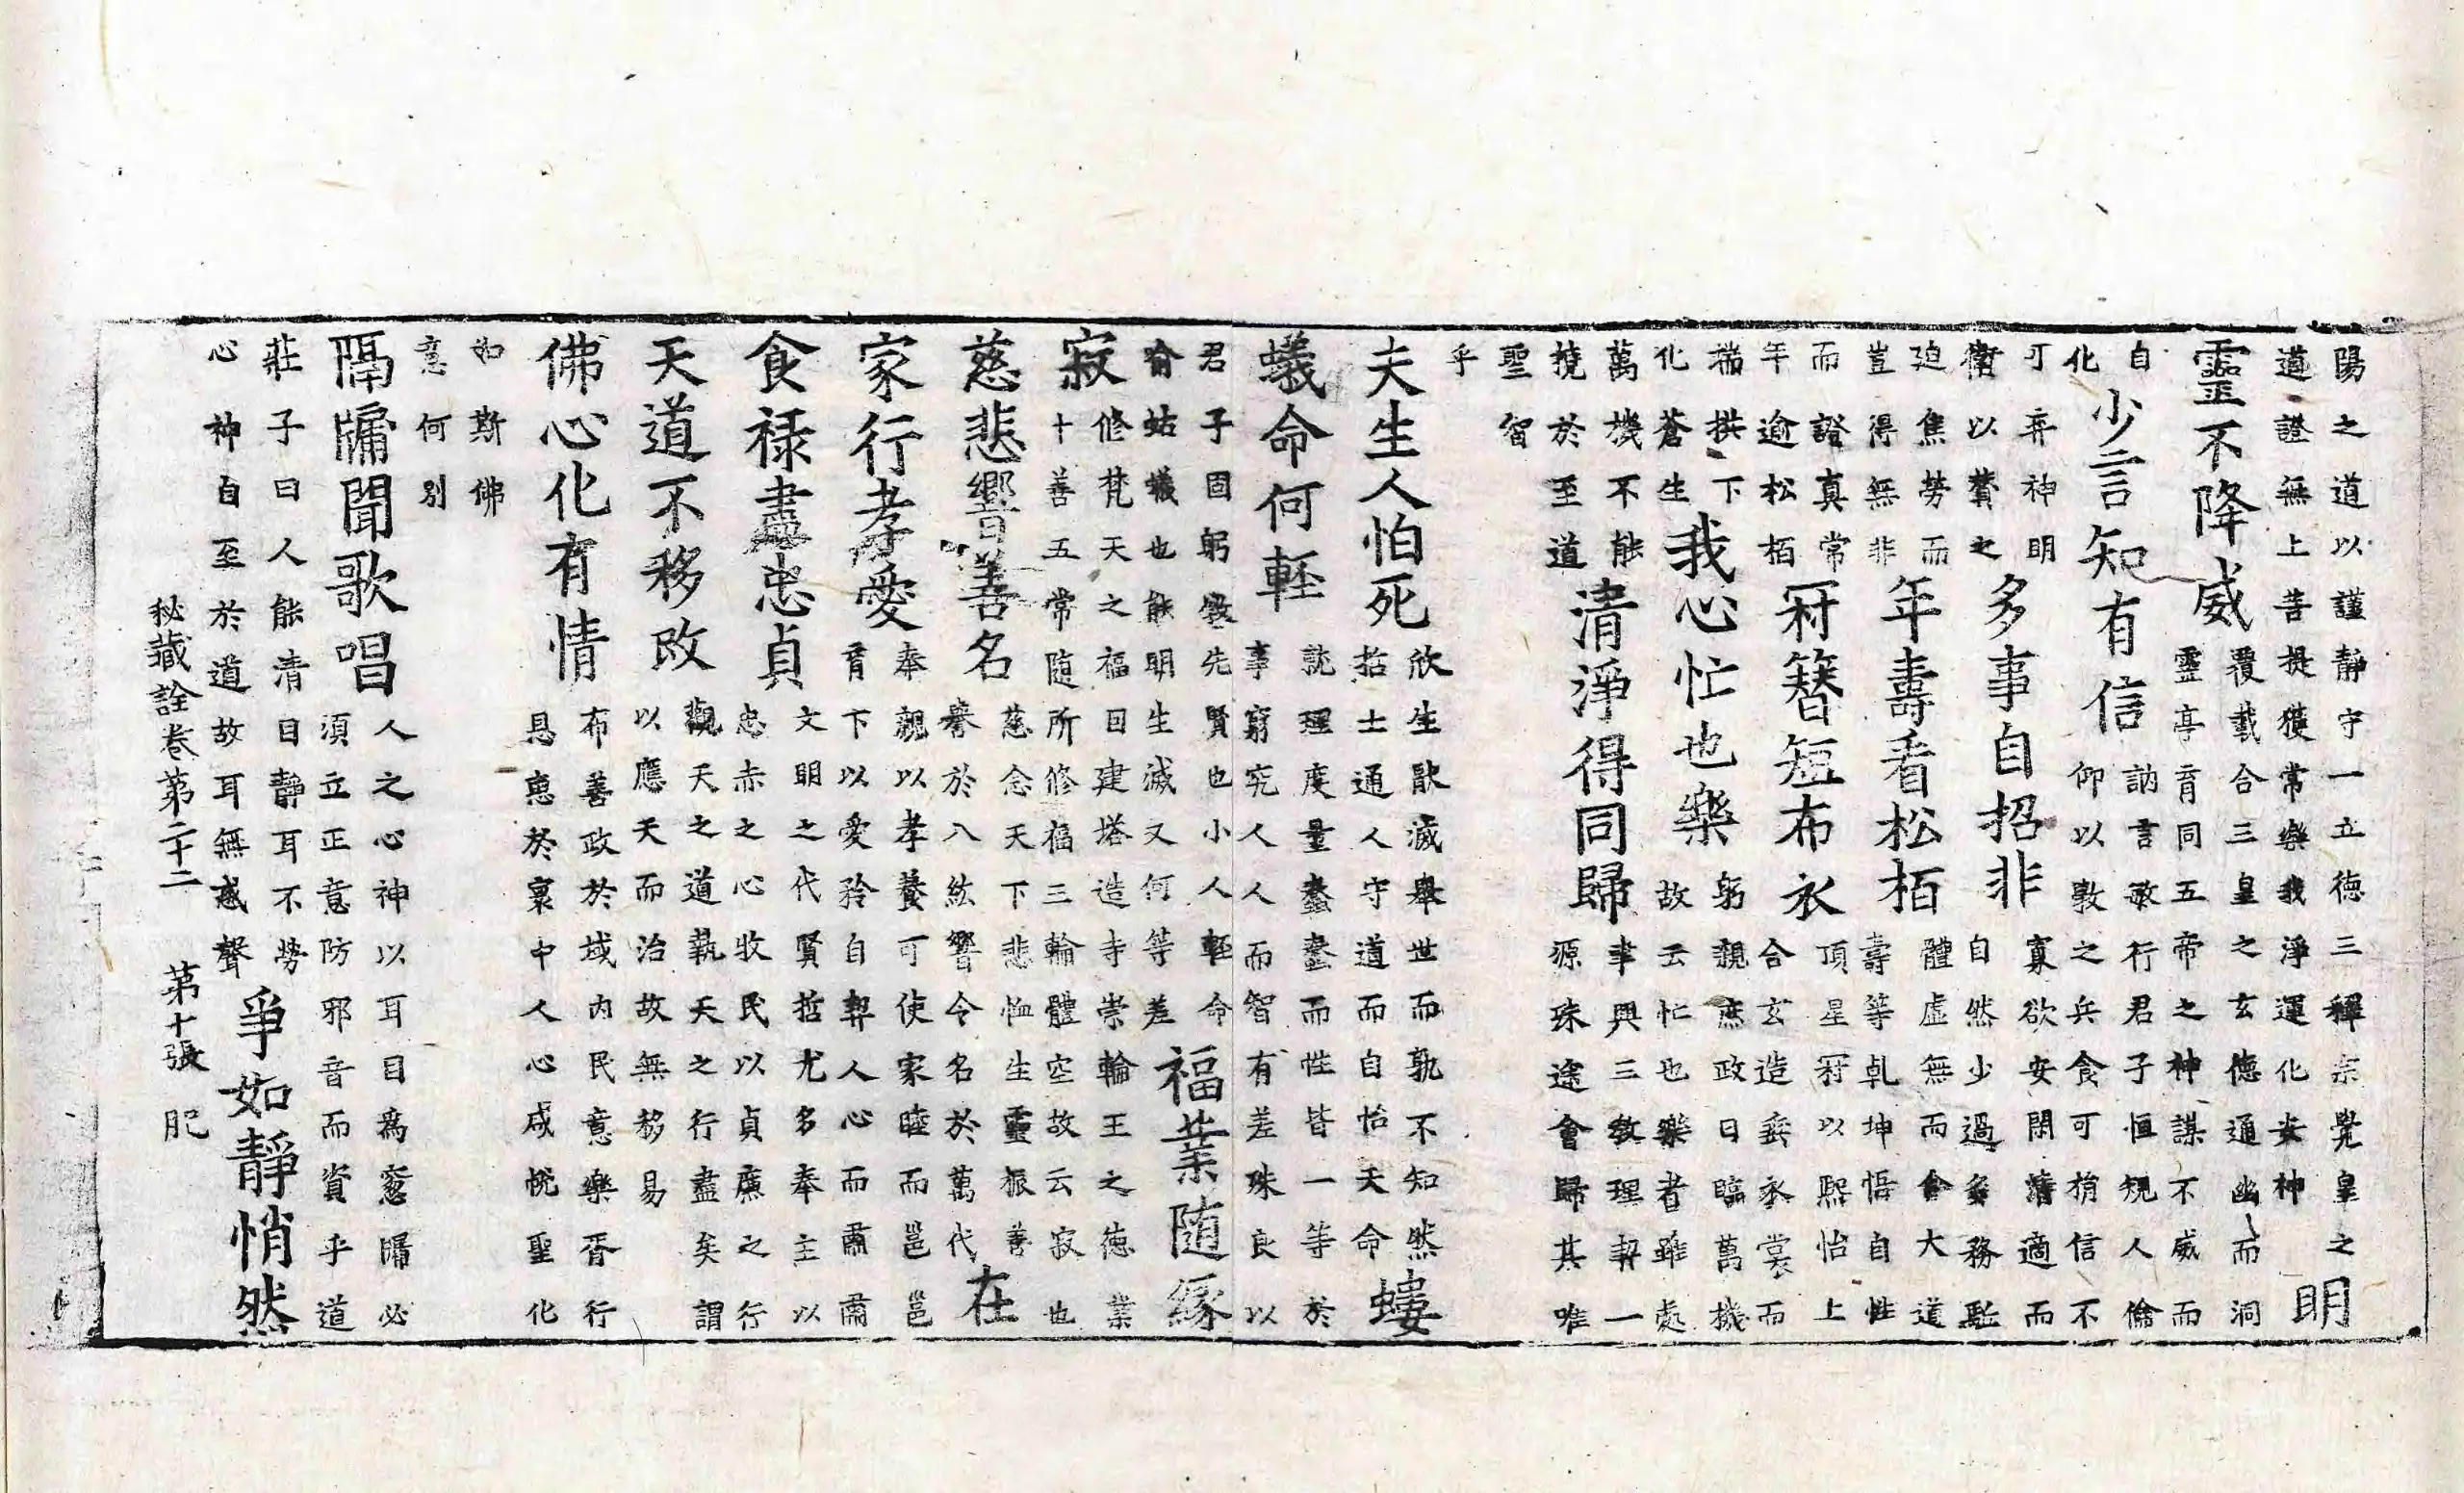 陽之道以謹靜守一立德三釋宗覺皇之
道證無上菩提獲常樂我淨運化妄神
明
靈不降威
覆載合三皇之玄德通幽而洞
靈亭育同五帝之神謀不威而
自
化
少言知有信
訥言敏行君子恒規人倫
仰以敦之兵食可捎信不
可弃神明
衛以贊之
多事自招非
寡欲安閑清適而
自然少過多務駈
迫焦勞而
豈得無非
年壽看松栢
體虛無而會大道
壽等乹坤悟自性
而證真常
年逾松栢
冠簪短布衣
頂星冠以熙怡上
合玄造垂衣裳而
端拱下
化蒼生
我心忙也樂
躬親庶政日臨萬機
故云忙也樂者雖處
萬機不能
撓於至道
清淨得同歸
聿興三教理契一
源殊途會歸其唯
聖智
乎
夫生人怕死
欣生猒滅舉世而孰不知然
括士通人守道而自怡天命
螻
蟻命何軽
詭理度量蠢蠢而性皆一等於
事窮究人人而智有差殊良以
君子固躬敬先賢也小人軽命
喻蛄蟻也能明生滅又何等差
福業随緣
寂
修梵天之福日建塔造寺崇輪王之德業
十善五常随所修福三輪體空故云寂也
慈悲響善名
慈念天下悲恤生靈振善
譽於八紘響令名於萬代
在
家行孝愛
奉親以孝養可使家睦而邕邕
育下以愛矜自契人心而肅肅
食禄盡忠貞
文明之代賢哲尤多奉主以
忠赤之心牧民以貞廉之行
天道不移改
觀天之道執天之行盡矣謂
以應天而治故無移易
佛心化有情
布善政於域内民意樂胥行
恩恵於寰中人心咸悅聖化
如斯佛
意何別
隔牖聞歌唱
人之心神以耳目爲窓牖必
須立正意防邪音而資乎道
莊子曰人能清目靜耳不勞
心神自至於道故耳無惑聲
爭如靜悄然
秘藏詮卷第二十二 第十張 肥